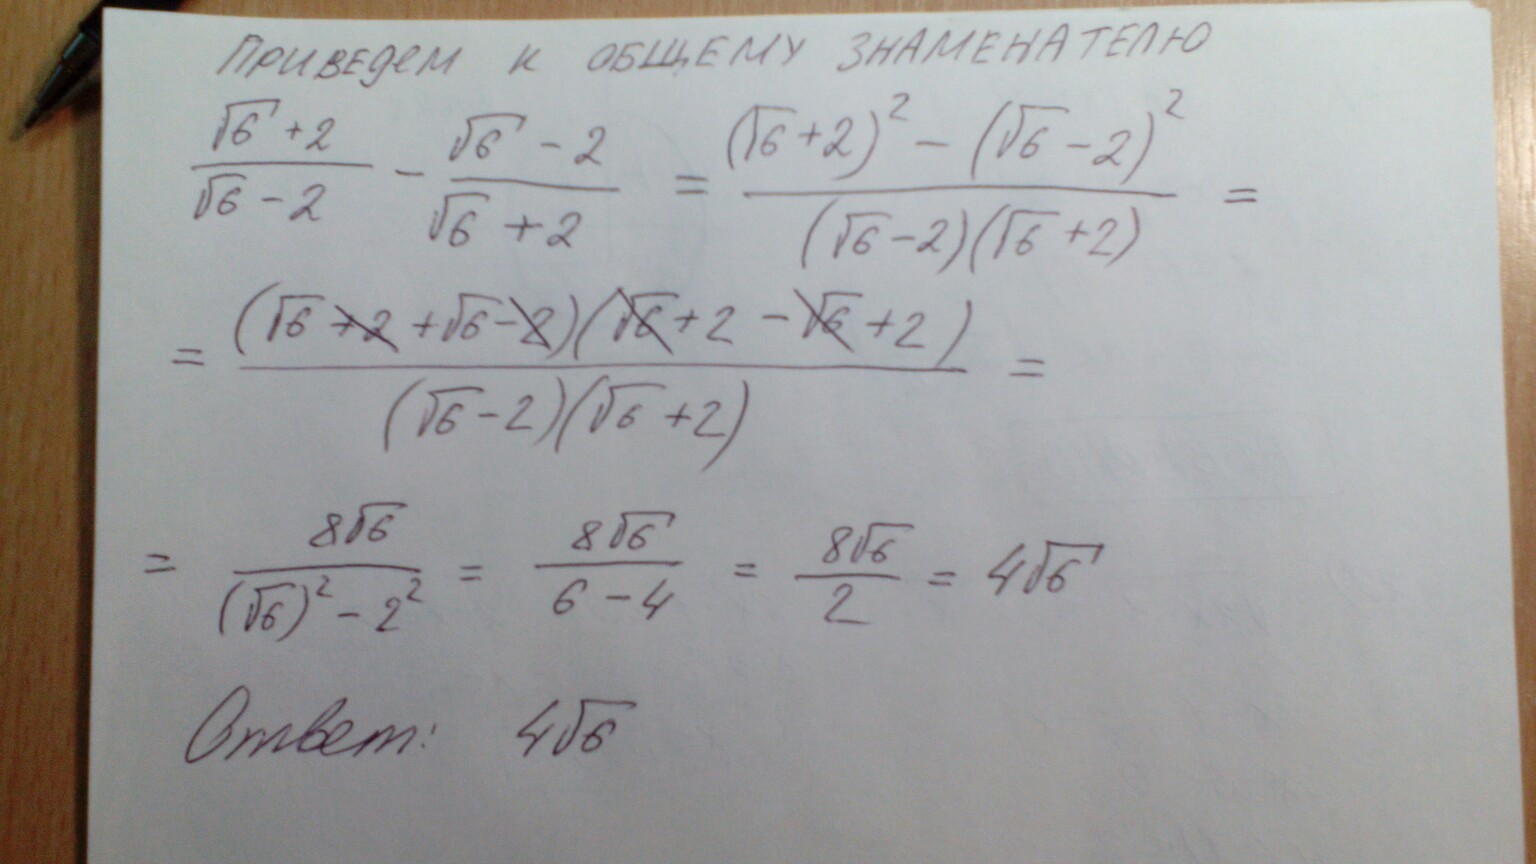 ПРИВЕДЕМ К ОБЩЕМУ ЗНАМЕНАТЕЛЮ
(√6+2)/(√6-2) - (√6-2)/(√6+2) = ((√6+2)² - (√6-2)²)/((√6-2)(√6+2)) =
= ((√6+2+√6-2)(√6+2-√6+2))/((√6-2)(√6+2)) =
= 8√6/((√6)²-2²) = 8√6/(6-4) = 8√6/2 = 4√6
Ответ: 4√6